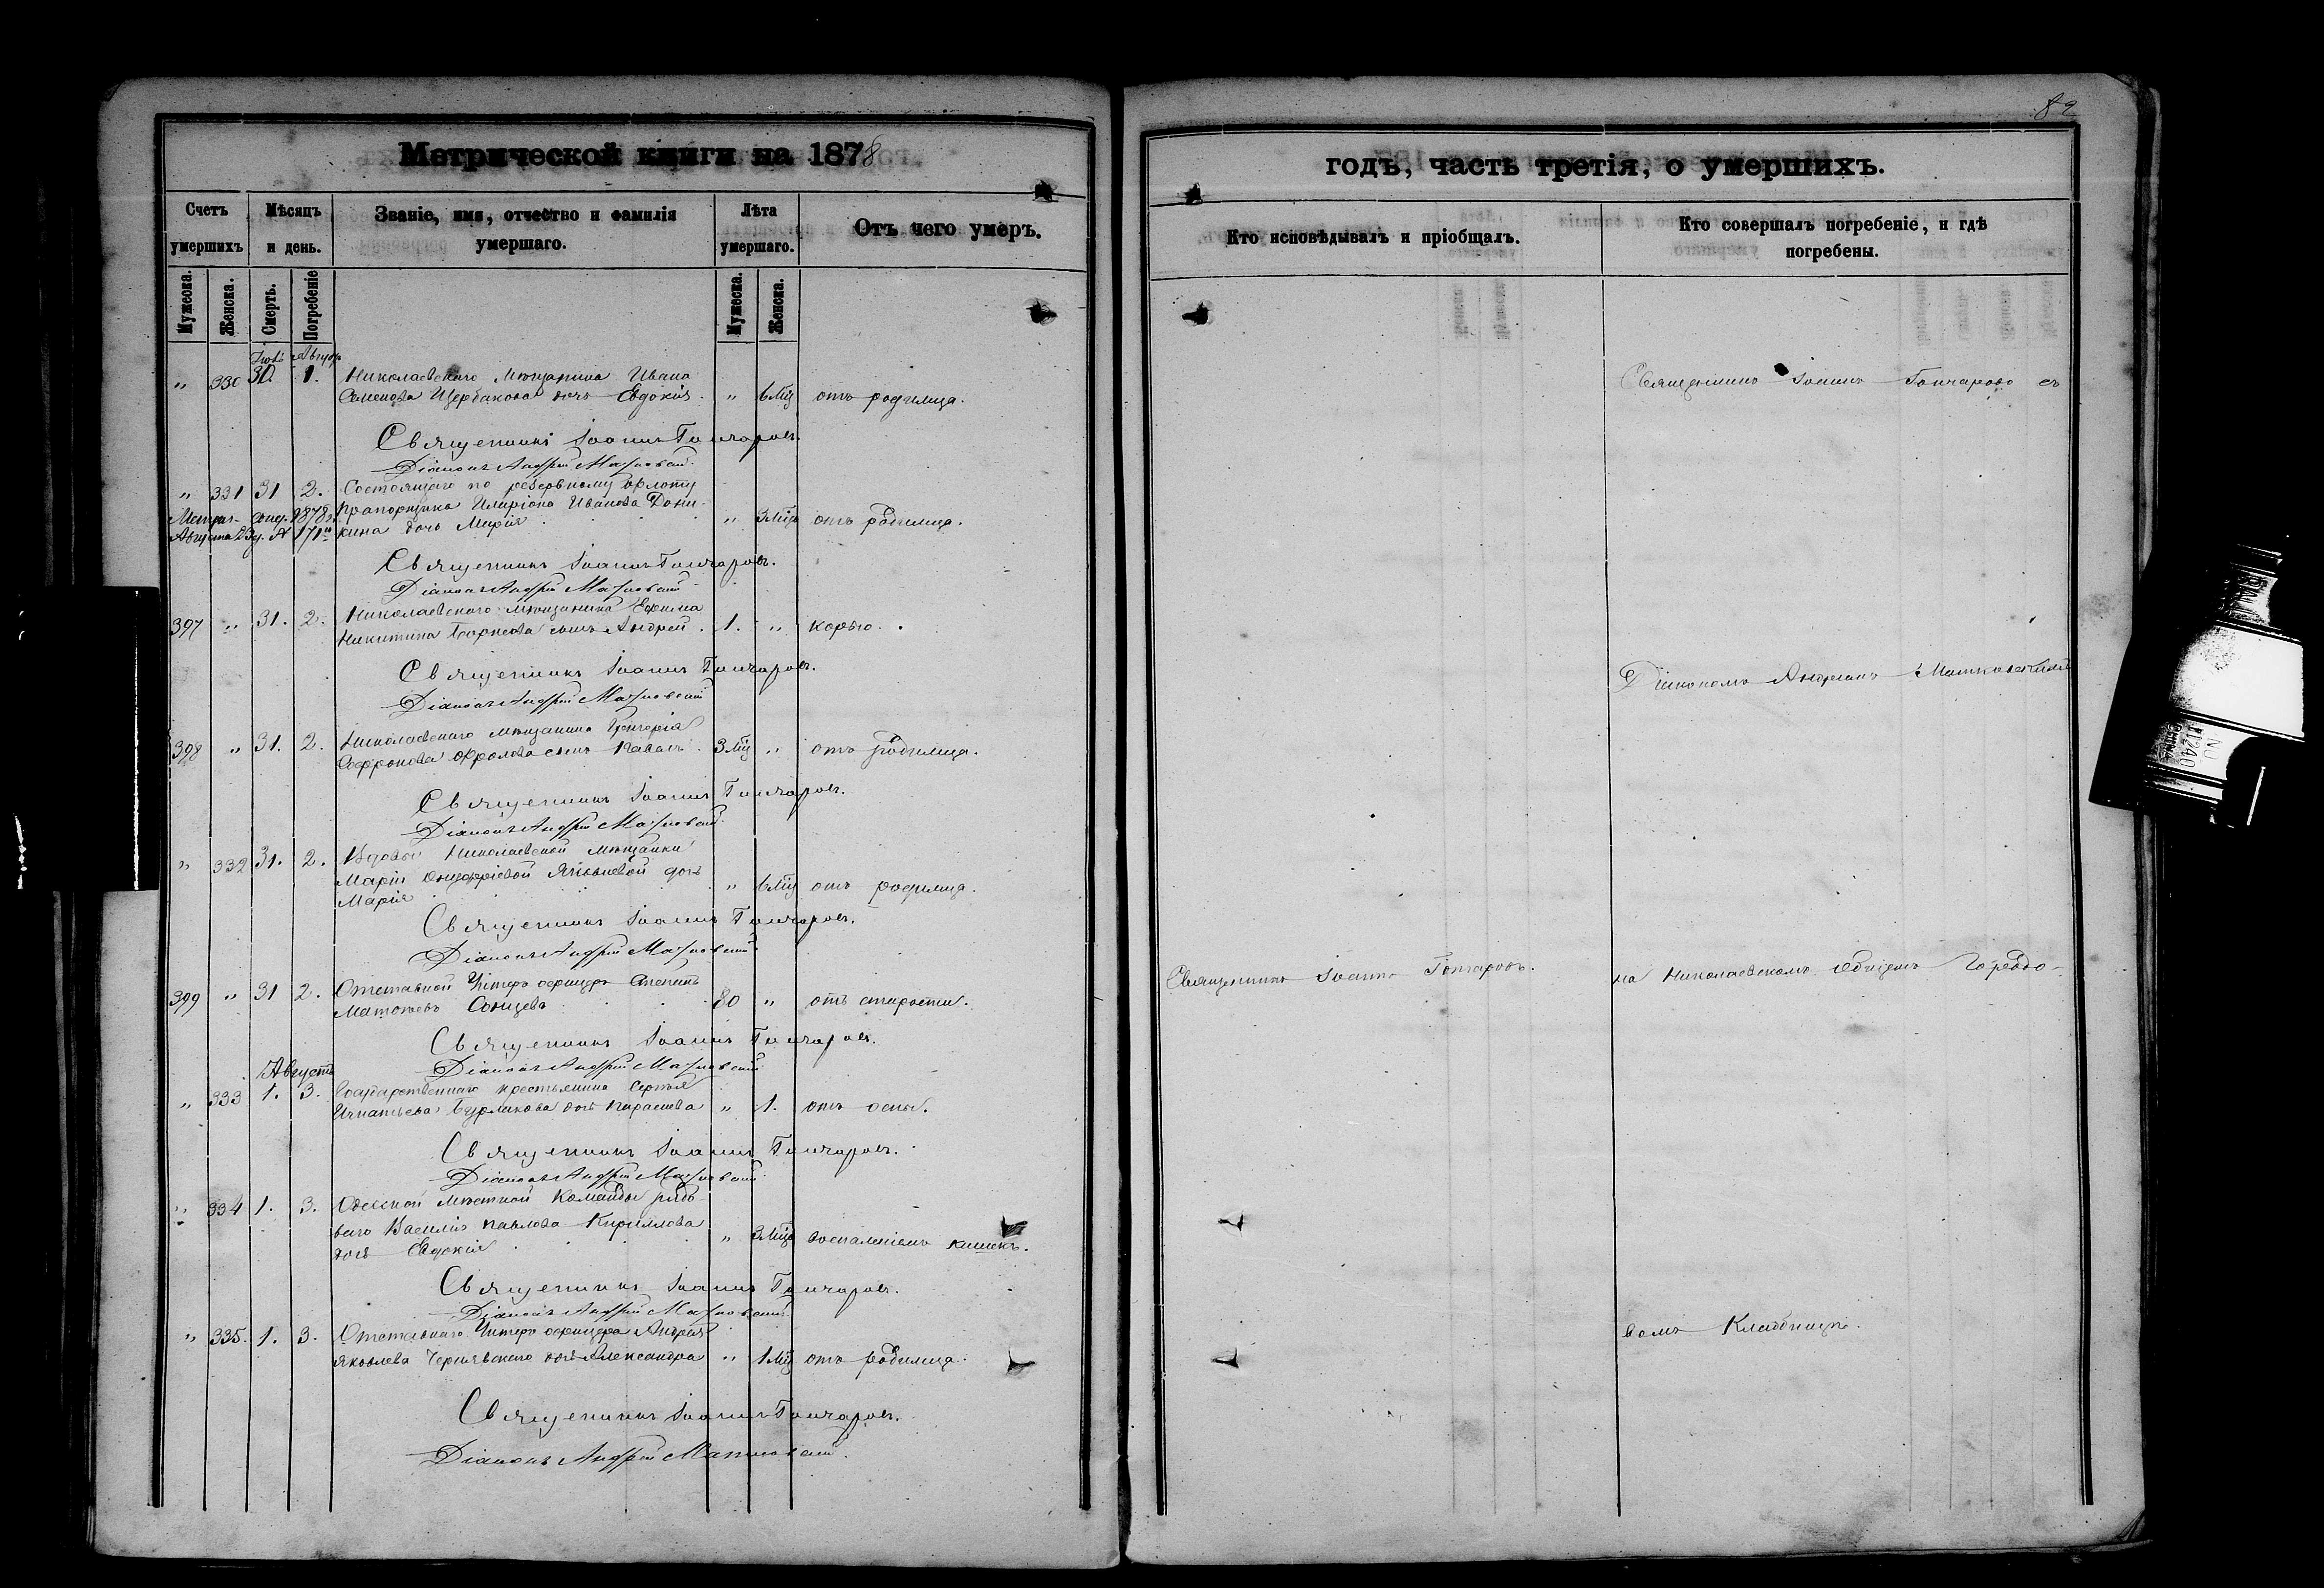 82
Метрической книги на 1878
годъ, часть третія, о умершихъ.
Счетъ умершихъ
Мѣсяцъ и день.
Званіе, имя, отчество и фамилія умершаго.
Лѣта умершаго.
Отъ чего умеръ.
Кто исповѣдывалъ и пріобщалъ.
Кто совершалъ погребеніе, и гдѣ погребены.
Мужеска. Женска. Смерть. Погребеніе Мужеска. Женска.
" 330 30. 1. Николаевскаго мѣщанина Ивана
Семенова Щербакова дочь Евдокія. " 6 мц отъ родимца.
Священникъ Іоаннъ Гончаровъ.
Діаконъ Андрей Матковскій.
" 331 31 2. Состоящаго по резервному флоту
прапорщика Иларіона Иванова Дони-
кина дочь Марія " 3 мца отъ родимца.
1878
Августа № 171
Священникъ Іоаннъ Гончаровъ.
Діаконъ Андрей Матковскій
397 " 31. 2. Николаевскаго мѣщанина Ефима
Никитина сынъ Андрей. 1. " корью.
Священникъ Іоаннъ Гончаровъ.
Діаконъ Андрей Матковскій
398 " 31. 2. Николаевскаго мѣщанина Григорія
Софронова Фролова сынъ Павелъ 3 мц " отъ родимца.
Священникъ Іоаннъ Гончаровъ.
Діаконъ Андрей Матковскій.
" 332 31. 2. Вдовы Николаевской мѣщанки
Маріи дочь
Марія " 6 мц отъ родимца.
Священникъ Іоаннъ Гончаровъ.
Діаконъ Андрей Матковскій
399 " 31 2. Отставной Унтеръ офицеръ
Солнцевъ 80 " отъ старости.
Священникъ Іоаннъ Гончаровъ.
Діаконъ Андрей Матковскій
Августъ
" 333 1. 3. Государственнаго крестьянина Сергѣя
Игнатьева Бурлакова дочь Параскева " 1. отъ оспы.
Священникъ Іоаннъ Гончаровъ.
Діаконъ Андрей Матковскій.
" 334 1. 3. Одесской мѣстной Команды рядо-
ваго Василія Павлова Кириллова
дочь Евдокія " 3 мца воспаленіемъ кишекъ.
Священникъ Іоаннъ Гончаровъ.
Діаконъ Андрей Матковскій.
" 335. 1. 3. Отставнаго Унтеръ офицера Андрея
Яковлева Чернявскаго дочь Александра " 1 мц отъ родимца.
Священникъ Іоаннъ Гончаровъ.
Діаконъ Андрей Матковскій.
Священникъ Іоаннъ Гончаровъ съ
Діакономъ Андреемъ Матковскимъ
Священникъ Іоаннъ Гончаровъ.
на Николаевскомъ общемъ Городо-
вомъ Кладбищѣ.